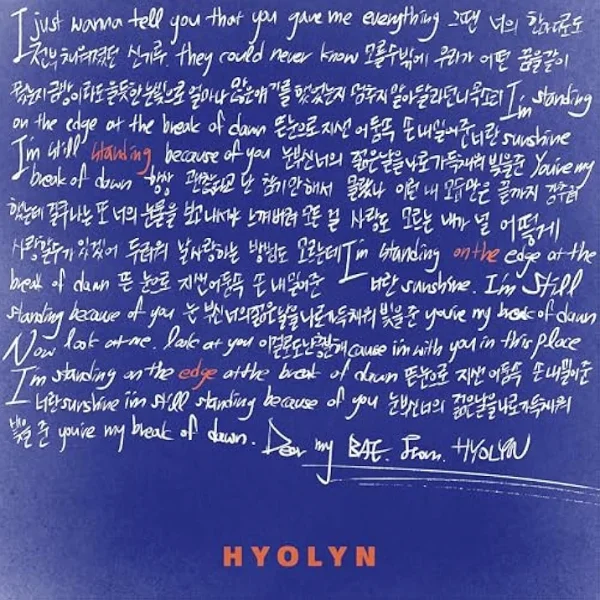 I just wanna tell you that you gave me everything 그땐 너의 한마디로도
전부 채워졌던 신기루. they could never know 모를수밖에 우리가 어떤 꿈을같이
꿨는지 금방이라도울듯한눈빛으로 얼마나 많은얘기를 했었는지 멈추지 말아달라던너목소리 I'm standing
on the edge at the break of dawn 뜬눈으로 지샌 어둠속 손 내밀어준 너란 sunshine
I'm still standing because of you 눈부신너의 젊은날을나로가득채워 빛을준 You're my
break of dawn 항상 괜찮다고 난 참기만해서 몰랐나 이런 내 모습만은 끝까지
했는데 결국나는 또 너의 눈물을 보고나서야 느껴버려 모든 걸 사랑도 모르는 내가 널 어떻게
사랑할수가 있겠어 두려워 날사랑하는 방법도 모르는데 I'm standing on the edge at the
break of dawn 뜬 눈으로 지샌어둠속 손 내밀어준 너란 sunshine. I'm Still
standing because of you 눈 부신너의젊은날을나로가득채워 빛을 준 you're my break of dawn
Now look at me. look at you 이걸로도 cause i'm with you in this place
I'm standing on the edge at the break of dawn 뜬눈으로 지샌 어둠속 손내밀어준
너란sunshine i'm still standing because of you 눈부신너의 젊은날을나로가득채워
빛을 준 you're my break of dawn. Dear my BAE. From. HYOLYN
HYOLYN